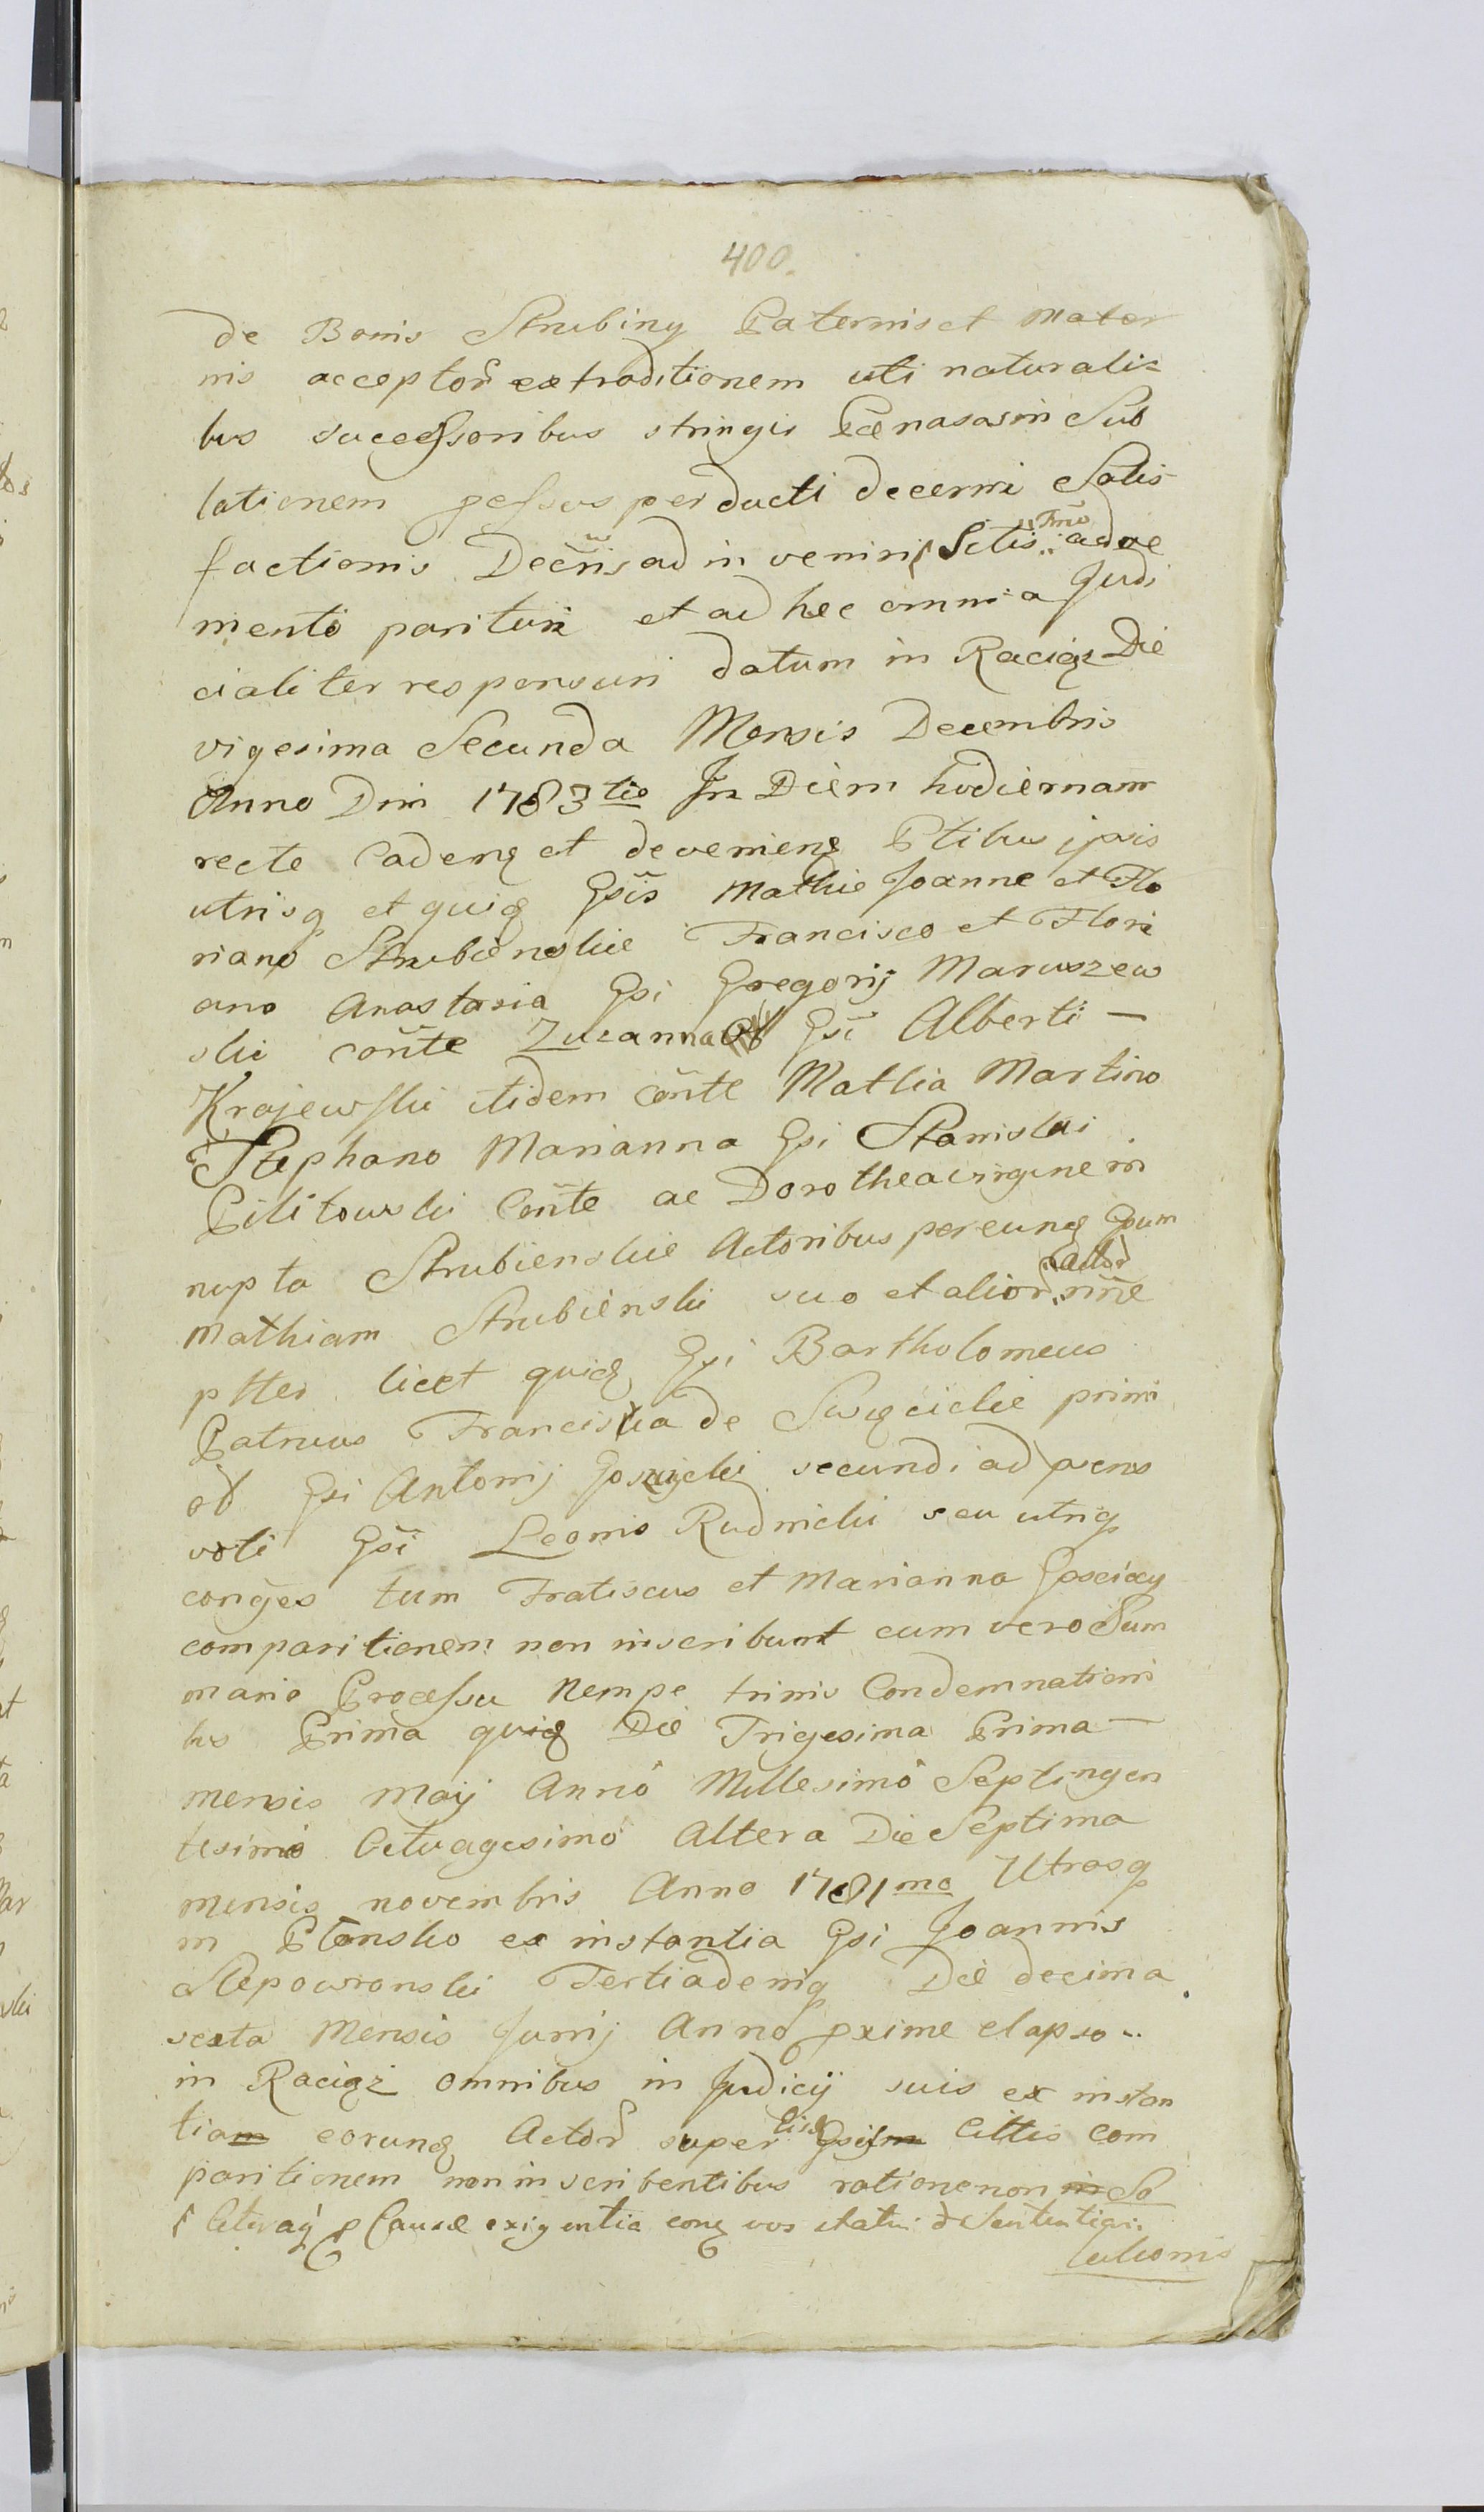 400.
de Bonis Strubiny Paternis et mater
nis acceptor extraditionem uti naturali=
bus successoribus stringis Pænas as in Sub
lationem pessus perducti decerni Satis
factionis Decris ad inveniri Sctis Fmo adve
mento parituri et ad hec omnia Judi
cialiter responsuri datum in Raciąż Die
vigesima Secunda Mensis Decembris
Anno Dni 1783tio In Diem hodiernam
recte Cadenq et devenienq Ptibus ipsis
utrisq et quiq Gsis Mathie Joanne et Flo
riano Strubienskie Francisco et Flori
ano Anastasia Gsi Gregorij Maruszew
ski conte Zuzanna Gsi Alberti —
Krajewski itidem conte Mathia Martino
Stephano Marianna Gsi Stanislai
Pilitowski Conte ac Dorothea virgine in
nupta Strubienskie Actoribus per eunq Gsum
Mathiam Strubienski suo et alior actor nñe
ptter licet quiq Gsi Bartholomeus
Patruus Francisca de Swięcickie primi
ob Gsi Antonij secundi ad pens
voti Gsi Leonis Rudnicki seu utriq
conges tum Fratiscus et Marianna Gosciccy
comparitionem non inscribunt cum vero Sum
mario Processu Nempe trinis Condemnationi
bus Prima quiq Die Trigesima Prima —
mensis Maij Anno Millesimo Septingen
tesimo Octuagesimo Altera Die Septima
mensis novembris Anno 1781mo Utrasq
in Płońsko ex instantia Gsi Joannis
Slepowronski Tertia deniq Die decima
sexta Mensis Junij Anno pxime elapso ..
in Raciąż omnibus in Judicij suis ex instan
tiam eorunq Actor super Gsis Cittis Com
paritionem non inscribentibus ratione non in So
Octuag p Causæ exigentia eonq vos statui d Sententiari
lutionis